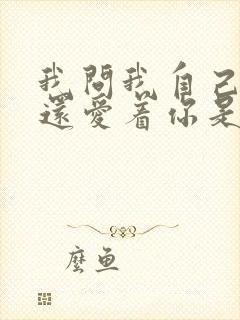 我問我自己
還愛着你是
麼魚